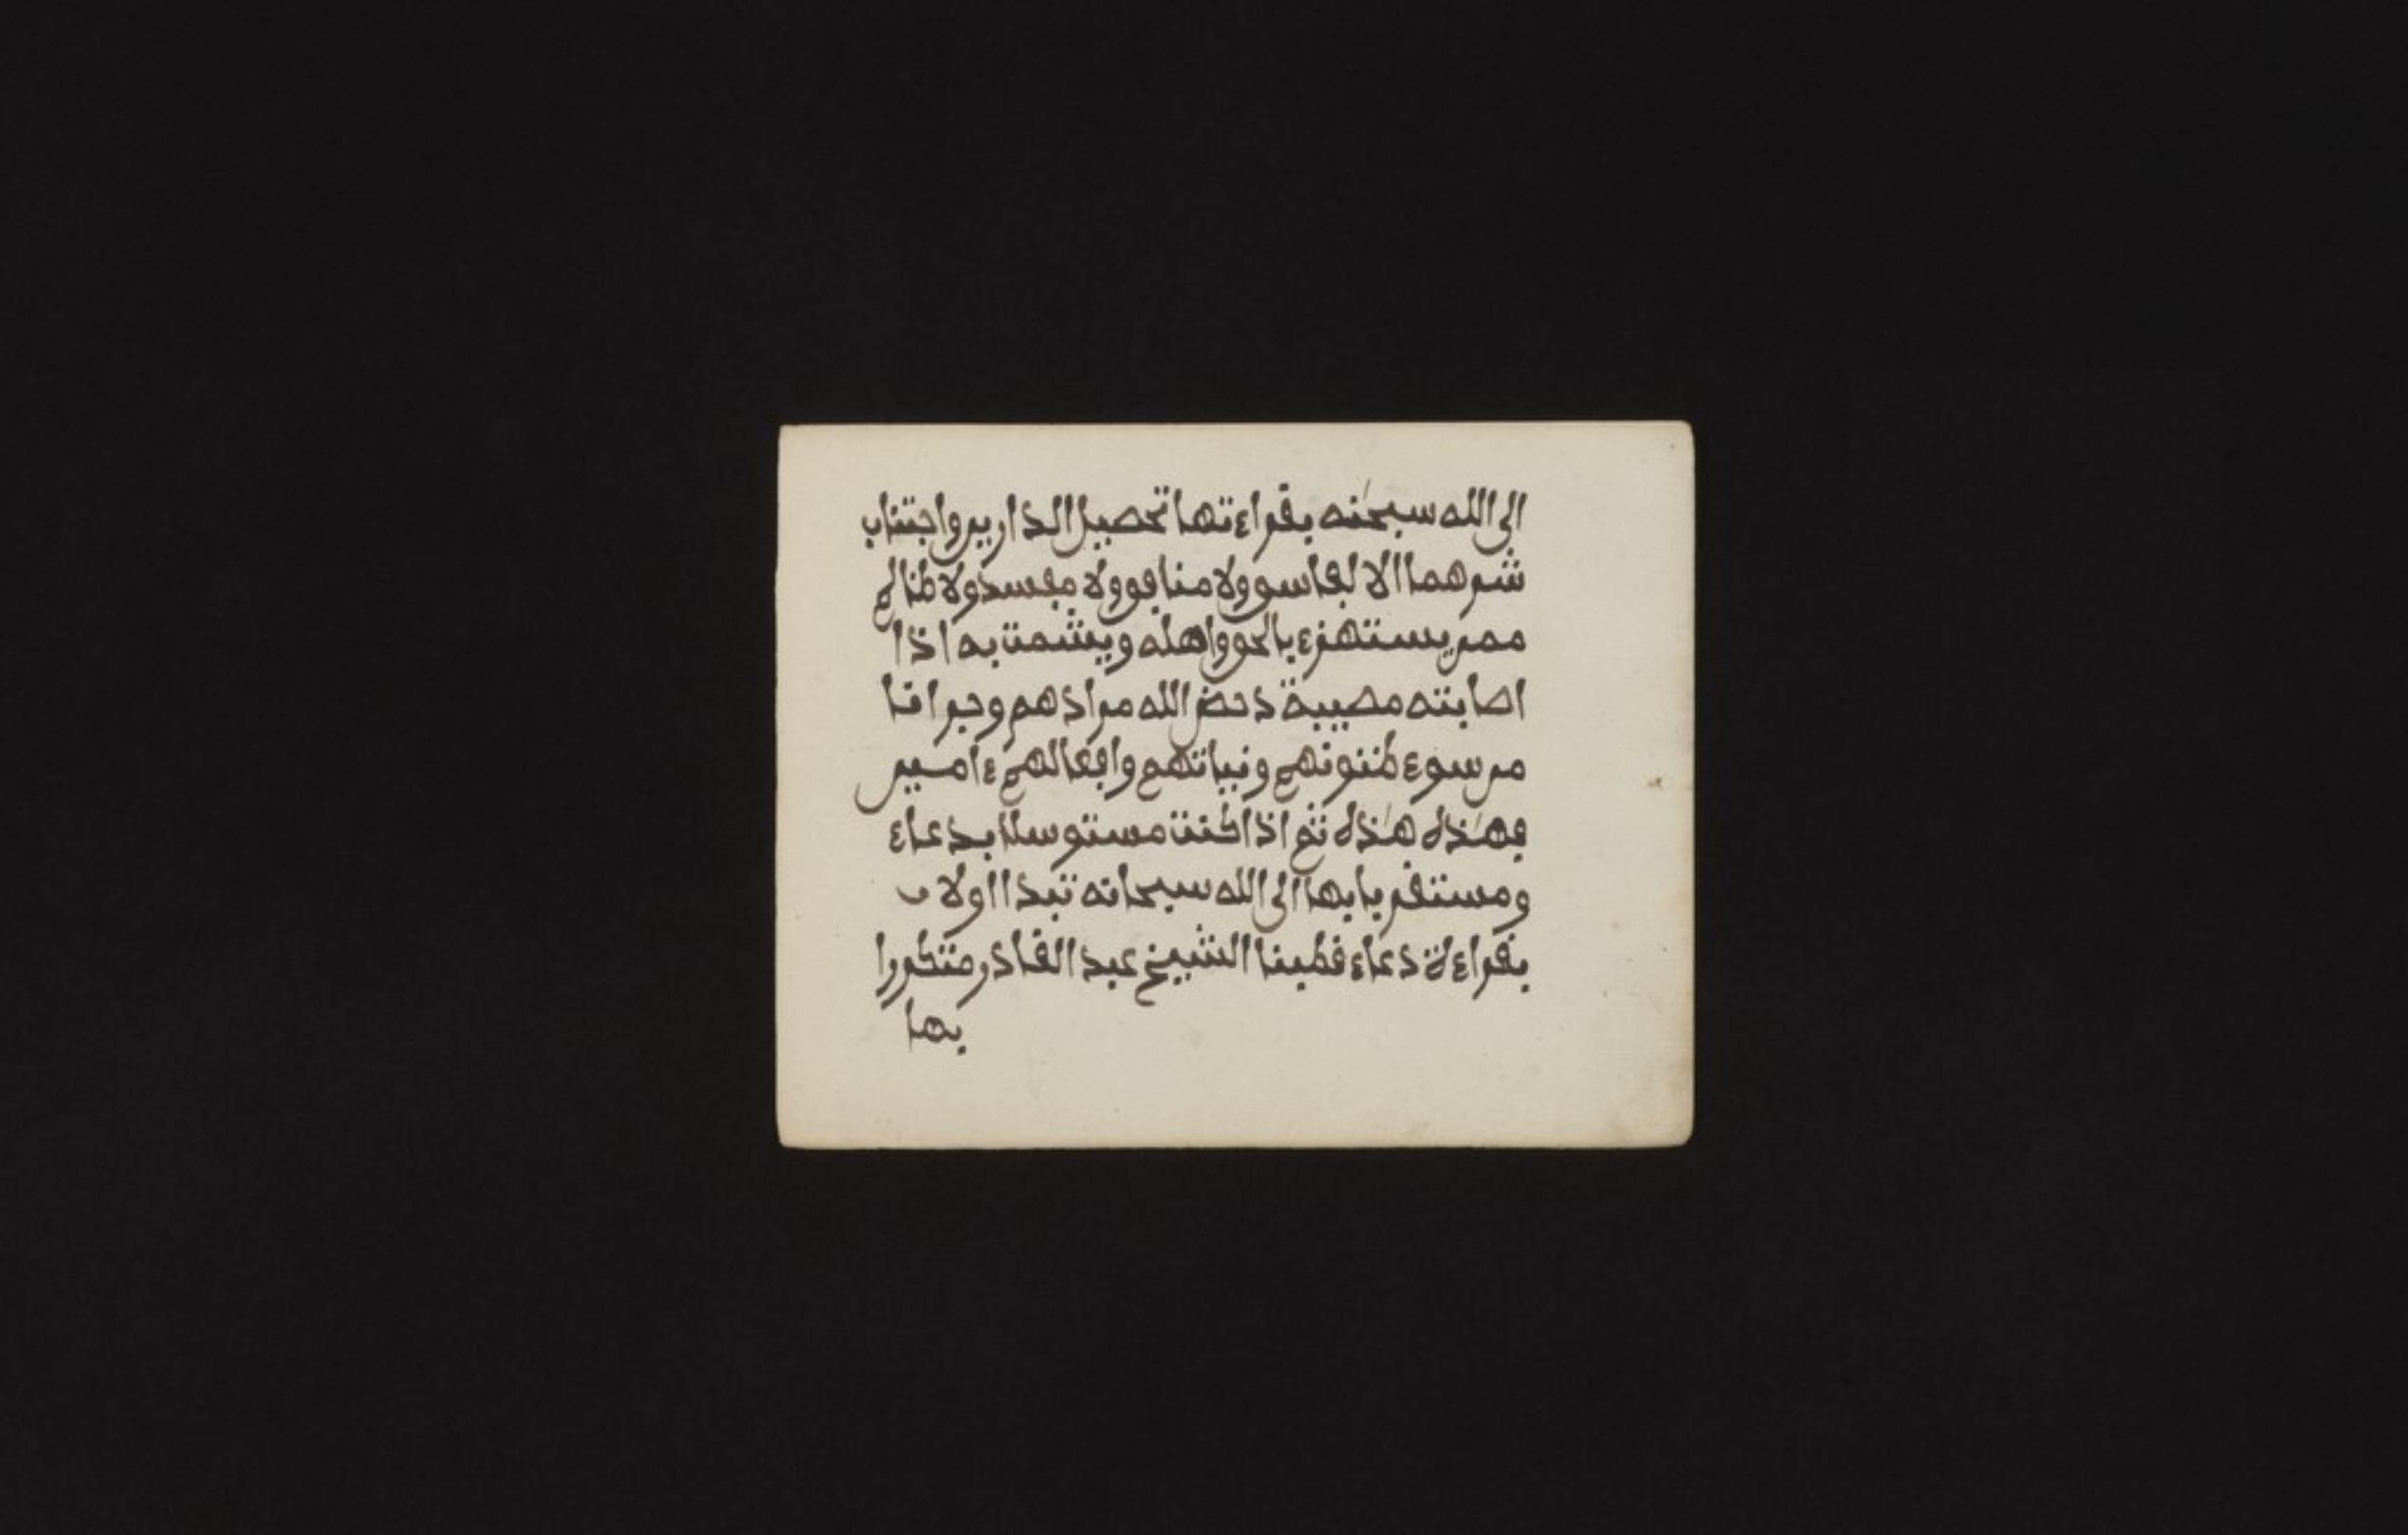 الى الله سبحنه بقراءتها تحصيل الذارين واجتناب
شرهما الا لفاسق ولا منافق ولا مفسد ولا ظالم
ممن يستهزء بالحق واهله ويشمت به اذا
اصابته مصيبة دحض الله مراذهم وجرافا
من سوء ظنونهم ونياتهم وافعالهم ءامين
فهذه هذه ثم اذا كنت مستوسلا بدعاء
ومستقربا بها الى الله سبحانه تبذا اولا ب
بقراءة دعاء قطبنا الشيخ عبد القاذر متكررا
بها